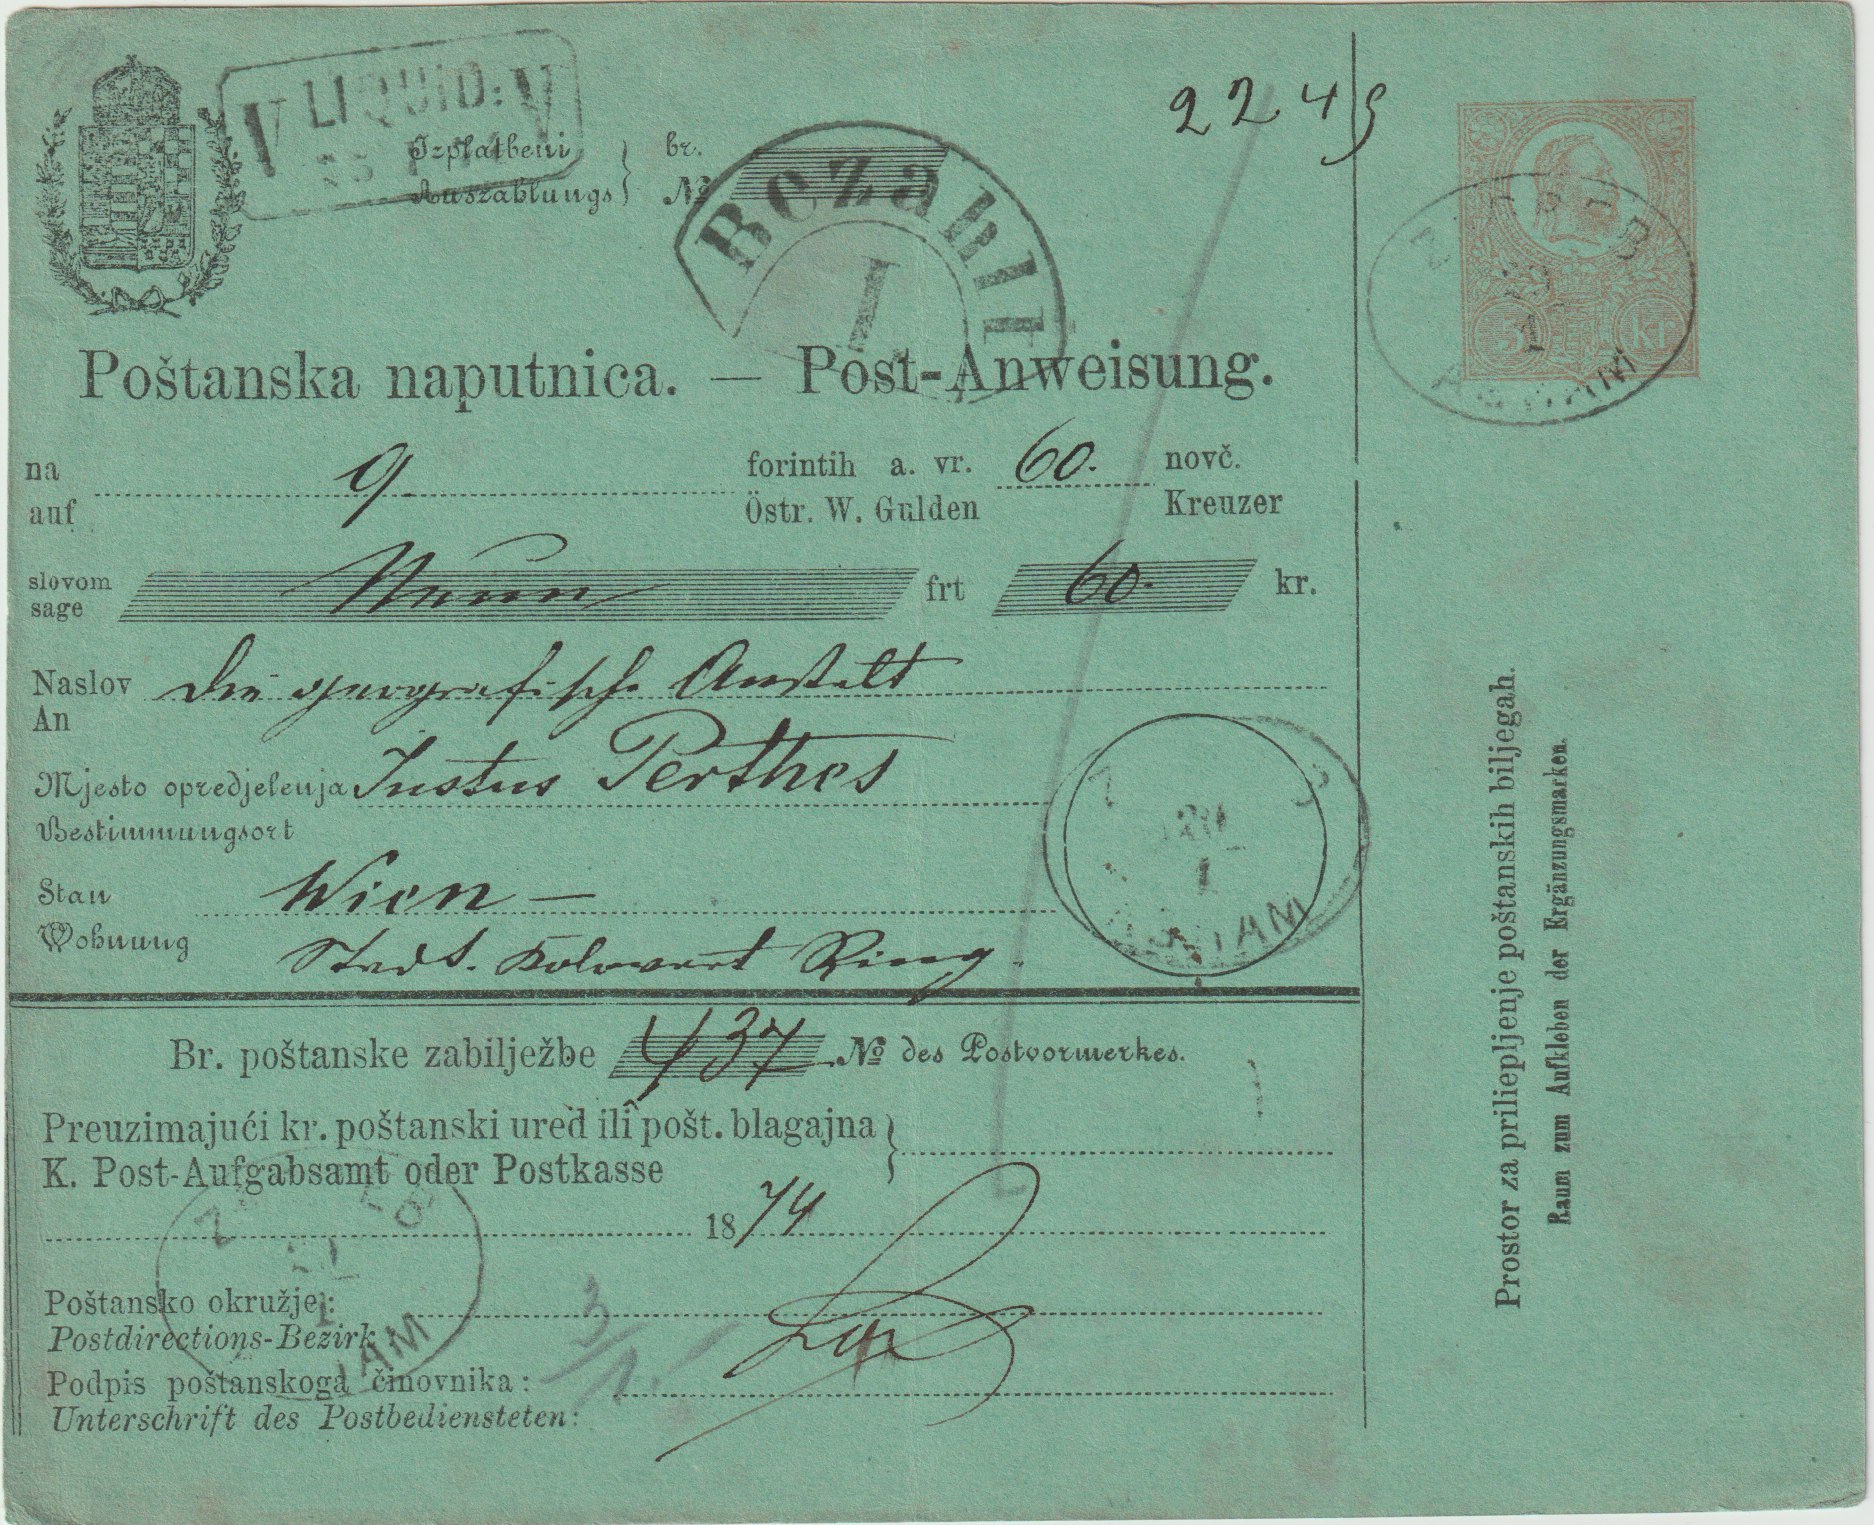 LIQUID:
V V
Izplatbeni br.
Auszahlungs No
Bezahlt
1
2249
5 kr
AGRAM
Poštanska naputnica. — Post-Anweisung.
na 9 forintih a. vr. 60. novč.
auf Östr. W. Gulden Kreuzer
slovom
sage Neun frt 60. kr.
Naslov Die geografische Anstalt
An
Mjesto opredjelenja Justus Perthes
Bestimmungsort
Stan Wien —
Wohnung
Stadt. Kolowrat Ring.
AGRAM
Br. poštanske zabilježbe 437 No des Postvormerkes.
Preuzimajući kr. poštanski ured ili pošt. blagajna
K. Post-Aufgabsamt oder Postkasse
1874
Poštansko okružje:
Postdirections-Bezirk
3/1.
Podpis poštanskoga činovnika:
Unterschrift des Postbediensteten:
Prostor za priliepljenje poštanskih biljegah.
Raum zum Aufkleben der Ergänzungsmarken.